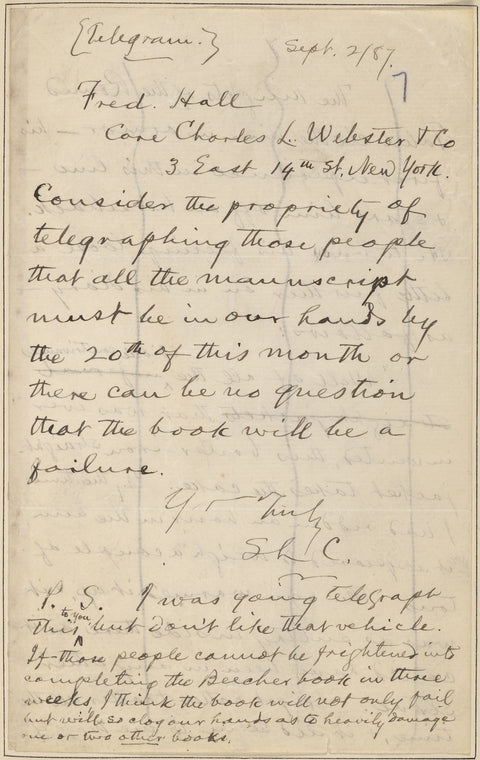 {Telegram.}
Sept. 2/87.
7
Fred. Hall
Care Charles L. Webster & Co
3 East 14th St, New York.
Consider the propriety of
telegraphing those people
that all the manuscript
must be in our hands by
the 20th of this month or
there can be no question
that the book will be a
failure.
Yrs Truly
SL C.
P. S. I was going telegraph
this to you, but don't like that vehicle.
If those people cannot be frightened into
completing the Beecher book in three
weeks, I think the book will not only fail
but will so clog our hands as to heavily damage
one or two other books.